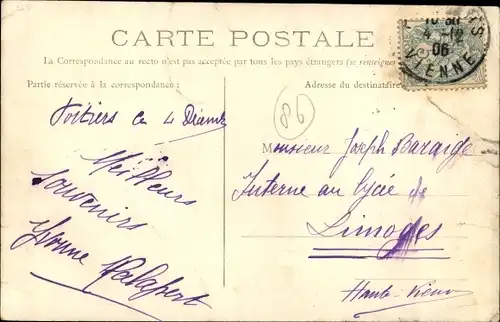 CARTE POSTALE
La Correspondance au recto n'est pas acceptée par tous les pays étrangers (se renseigner
Partie réservée à la correspondance:
Adresse du destinataire
10 30
4 -12
06
VIENNE
86
Poitiers ce 4
Meilleurs
souvenirs
Yvonne
Monsieur Joseph
Interne au lycée de
Limoges
Haute-Vienne